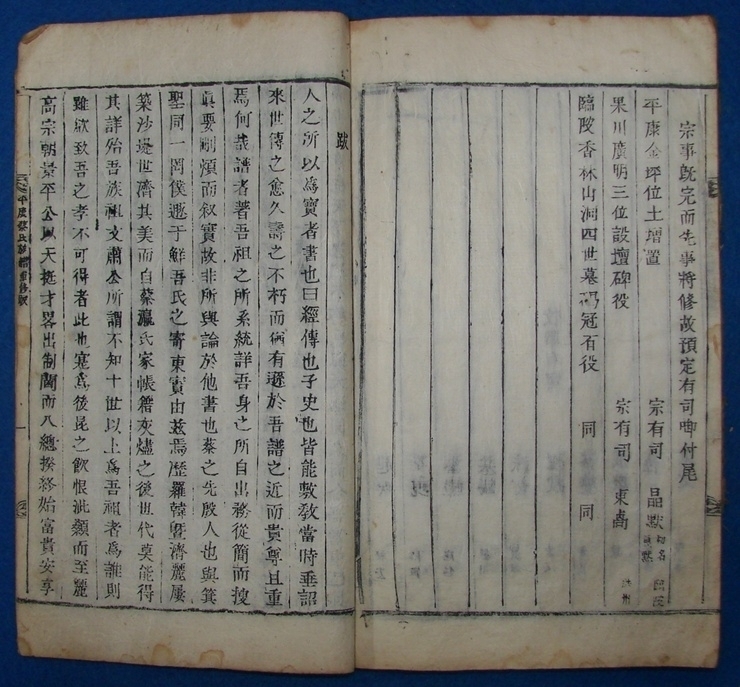 宗事旣完而先事將修故預定有司啣付尾
平康金坪位土增置 宗有司 晶默
果川廣明三位設壇碑役 宗有司 東卨
臨陂香林山洞四世墓碣冠石役 同 同
跋
人之所以爲寶者書也曰經傳也子史也皆能敷敎當時垂詔
來世傳之愈久壽之不朽而猶有遜於吾譜之近而貴尊且重
焉何哉譜者著吾祖之所系統詳吾身之所自出務從簡而搜
眞要刪煩而叙實故非所與論於他書也蔡之先殷人也與箕
聖同一罔僕遯于鮮吾氏之寄東實由玆焉歷羅韓曁濟麗屢
築沙堤世濟其美而自蔡瀛氏家帳籍灰燼之後世代莫能得
其詳殆吾族祖文肅公所謂不知十世以上爲吾祖者爲誰則
雖欲致吾之孝不可得者此也寔爲後昆之飮恨泚顙而至麗
高宗朝景平公以天挺才畧出制閫而入總揆終始富貴安享
平康蔡氏